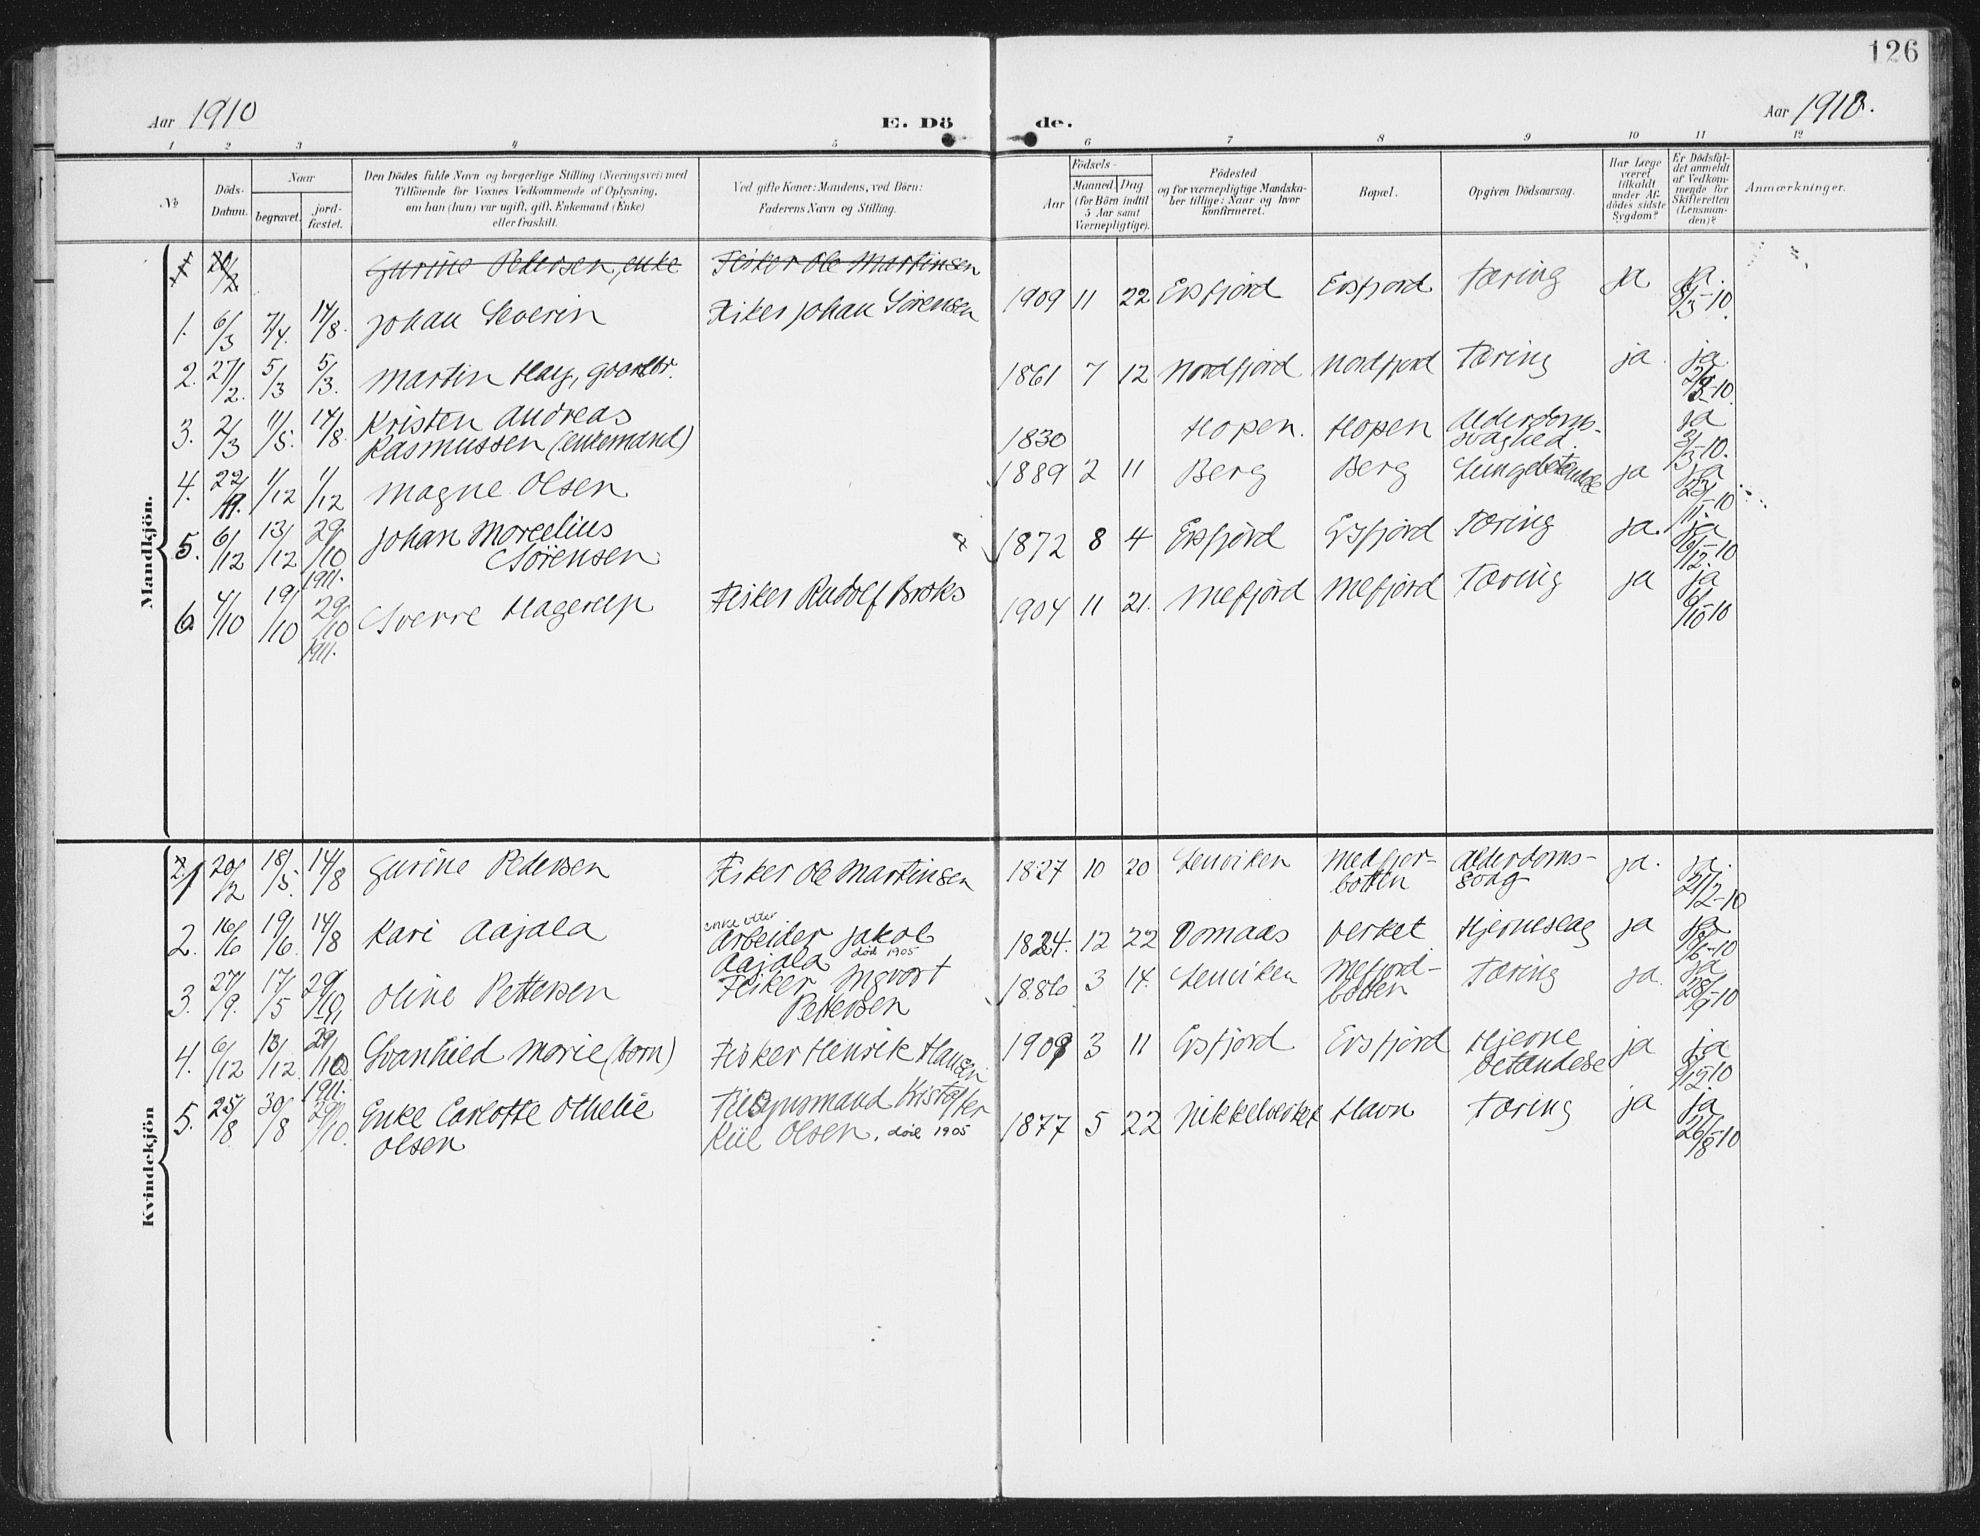 126
Aar 1910
E. Dö
de.
Aar 1910.
1 2 3 4 5 6 7 8 9 10 11 12
№
Döds-
Datum.
Naar
begravet.
jord-
fæstet.
Den Dödes fulde Navn og borgerlige Stilling (Næringsvei) med
Tilföiende for Voxnes Vedkommende af Oplysning,
om han (hun) var ugift, gift, Enkemand (Enke)
eller fraskilt.
Ved gifte Koner: Mandens, ved Börn:
Faderens Navn og Stilling.
Födsels-
Aar
Maaned
Dag
(for Börn indtil
5 Aar samt
Værnepligtige).
Födested
og for værnepligtige Mandska-
ber tillige: Naar og hvor
konfirmeret.
Bopæl.
Opgiven Dödsaarsag.
Har Læge
været
tilkaldt
under Af-
dödes sidste
Sygdom?
Er Dödsfal-
det anmeldt
af Vedkom-
mende for
Skifteretten
(Lensman-
den)?
Anmærkninger.
Mandkjön.
1 20/2 Gurine Pedersen, enke Fisker Ole Martinsen
1. 6/3 7/4. 14/8. Johan Severin Fisker Johan Sörensen 1909 11 22 Ersfjord Ersfjord Tæring ja ja 8/3-10.
2. 27/2. 5/3 5/3. Martin Hay, gaardbr. 1861 7 12 Nordfjord Nordfjord Tæring ja. ja 2/3-10
3. 2/3 11/5. 14/8. Kristen Andreas
Rasmussen (enkemand) 1830 Hopen. Hopen Alderdoms-
svaghed. ja 3/3-10.
4. 22/11. 1/12 1/12 Magne Olsen 1889 2 11 Berg Berg Lungebetændelse ja ja 23/11-10
5. 6/12 13/12 29/10 1911. Johan Marcelius
Sörensen 1872 8 4 Ersfjord Ersfjord Tæring ja. ja 6/12-10
6. 4/10 19/10 29/10 1911. Sverre Hagerup Fisker Rudolf Broks 1904 11 21. Mefjord Mefjord Tæring ja ja 6/10-10
Kvindekjön
1 20/2 18/5. 14/8 Gurine Pedersen Fisker Ole Martinsen 1827 10 20 Lenviken Medfjor-
botten Alderdoms-
svag ja. ja. 21/2-10
2. 16/6 19/6. 14/8 Kari Aajala enke etter
Arbeider Jakob
Aajala död 1905 1824. 12 22 Domaas Verket Hjerneslag ja ja 18/6-10
3. 27/9. 17/5 29/10 Oline Pettersen Fisker Ingvart
Pettersen 1886 3 14. Lenviken Mefjord-
botten Tæring ja. ja 28/9-10
4. 6/12 13/12 29/10 1911. Svanhild Marie (barn) Fisker Henrik Hansen 1909 3 11 Ersfjord Ersfjord Hjerne
betændelse ja ja 9/12-10
5. 25/8. 30/8 29/10. Enke Carlotte Othelie
Olsen Tilsynsmand Kristoffer
Kiil Olsen, död 1905 1877 5 22 Nikkelverket Havn Tæring ja ja 26/8-10